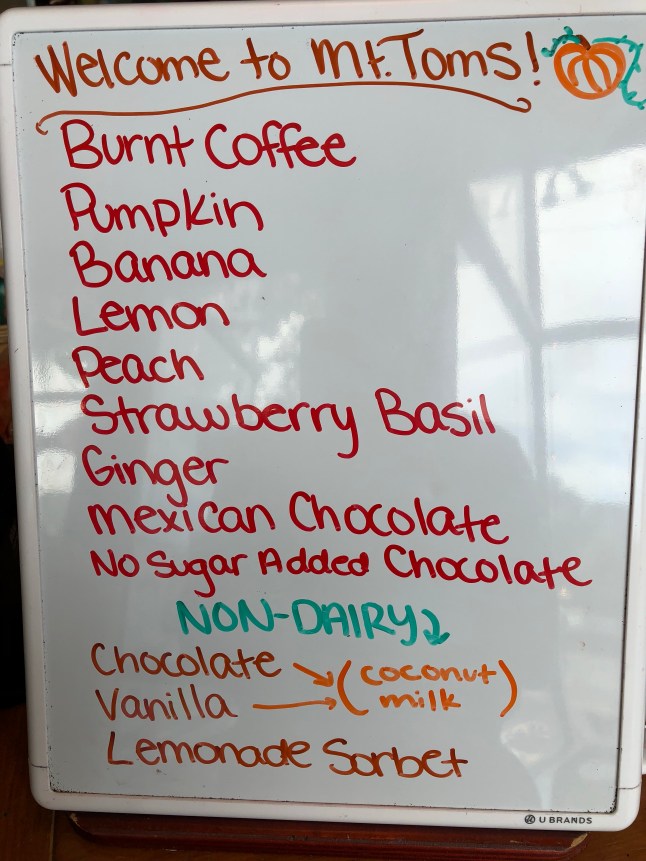 Welcome to Mt. Toms!
Burnt Coffee
Pumpkin
Banana
Lemon
Peach
Strawberry Basil
Ginger
mexican Chocolate
No Sugar Added Chocolate
NON-DAIRY
Chocolate
Vanilla
(coconut
milk)
Lemonade Sorbet
U BRANDS